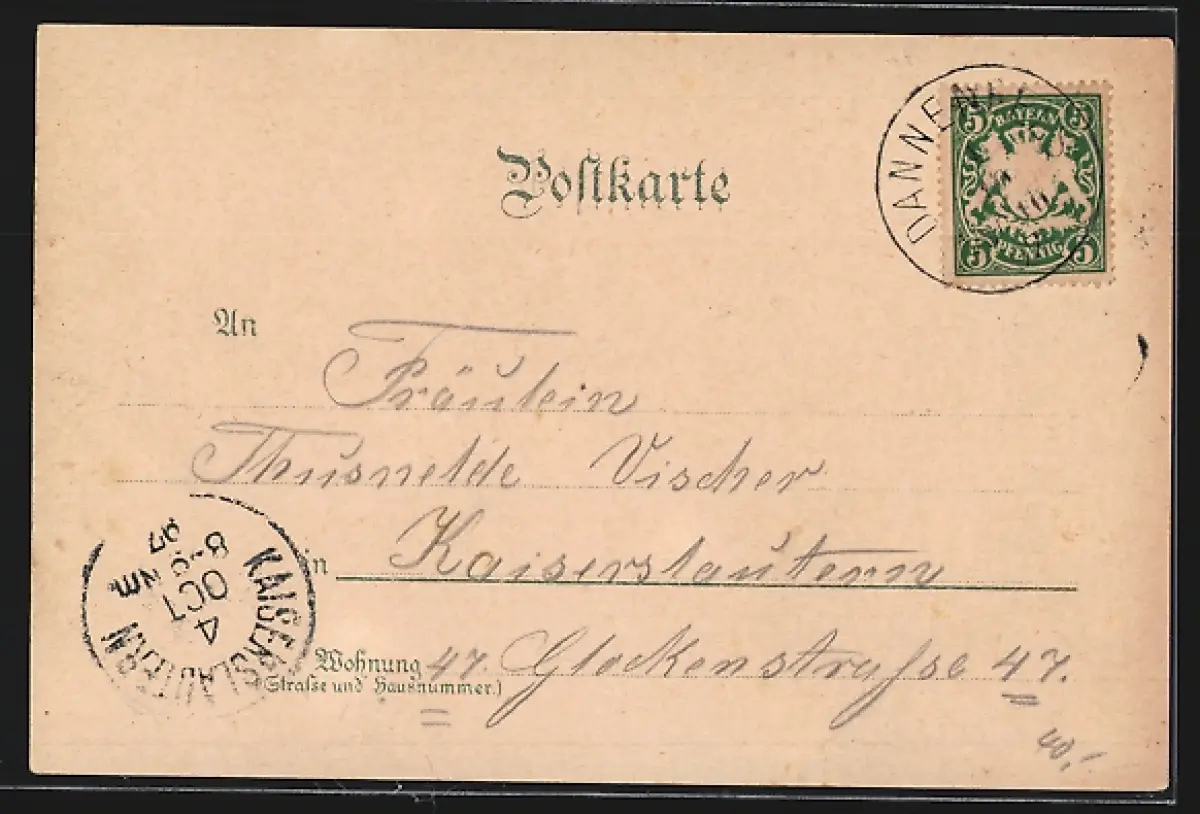 Postkarte
DANNENFELS
5 BAYERN 5
5 PFENNIG 5
An
Fräulein
Thusnelde Vischer
in Kaiserslautern
Wohnung 47. Glockenstraſse 47.
(Straſse und Hausnummer.)
KAISERSLAUTERN
4
OCT
8-9 Nm
97
40,-